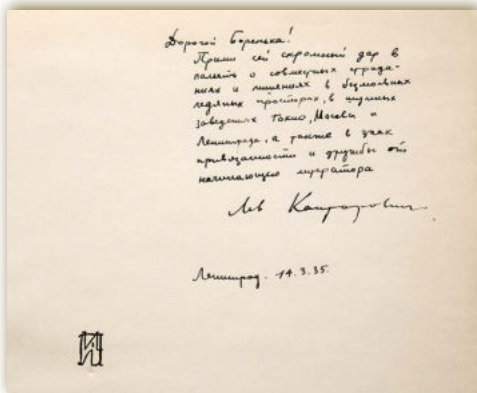 Дорогой Боренька!
Прими сей скромный дар в
память о совместных страда-
ниях и лишениях в безмолвных
ледяных просторах, в шумных
заведениях Токио, Москвы и
Ленинграда, а также в знак
привязанности и дружбы от
начинающего литератора
Лев Канторович
Ленинград. 14.3.35.